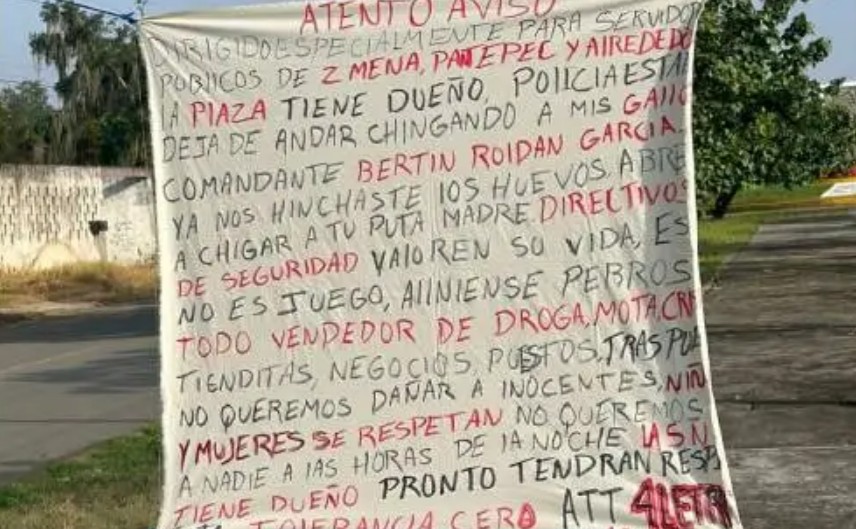 ATENTO AVISO
DIRIGIDO ESPECIALMENTE PARA SERVIDOR
PUBLICOS DE Z MENA, PATEPEC Y AIREDEDO
LA PLAZA TIENE DUEÑO, POLICIA ESTA
DEJA DE ANDAR CHINGANDO A MIS GALLO
COMANDANTE BERTIN ROLDAN GARCIA.
YA NOS HINCHASTE LOS HUEVOS. ABRE
A CHIGAR A TU PUTA MADRE. DIRECTIVOS
DE SEGURIDAD VALOREN SU VIDA, ES
NO ES JUEGO, ALINIENSE PERROS
TODO VENDEDOR DE DROGA, MOTA, CRI
TIENDITAS, NEGOCIOS, PUESTOS, TRASPU
NO QUEREMOS DAÑAR A INOCENTES, NIÑ
Y MUJERES SE RESPETAN NO QUEREMOS
A NADIE A LAS HORAS DE LA NOCHE LA SN
TIENE DUEÑO PRONTO TENDRAN RESP
TOLERANCIA CERO ATT 4LETR